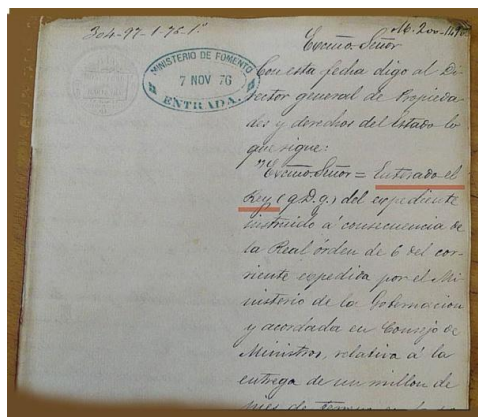 304-97-1-76-1º
MINISTERIO DE FOMENTO
7 NOV 76
ENTRADA.
Excmo. Señor
Con esta fecha digo al Di
rector general de Propieda
des y derechos del Estado lo
que sigue:
"Excmo. Señor = Enterado el
Rey (q. D. g.) del expediente
instruido á consecuencia de
la Real órden de 6 del cor-
riente expedida por el Mi
nisterio de la Gobernacion
y acordada en Consejo de
Ministros, relativa á la
entrega de un millon de
pies de terreno en